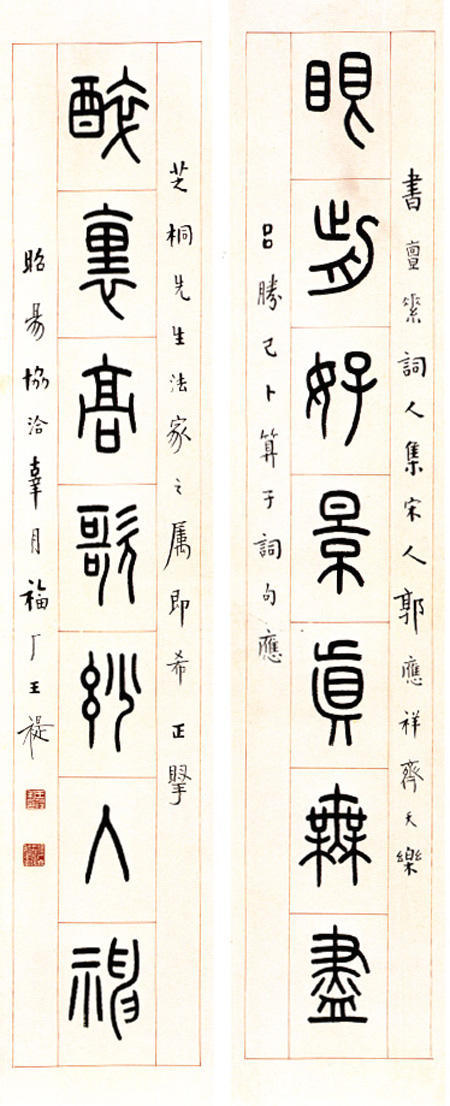 眼前好景真無盡
醉裏高歌玅入神
書亶素詞人集宋人郭應祥齊天樂
呂勝己卜算子詞句應
芝桐先生法家之属即希正掔
昭昜協洽辜月福厂王禔